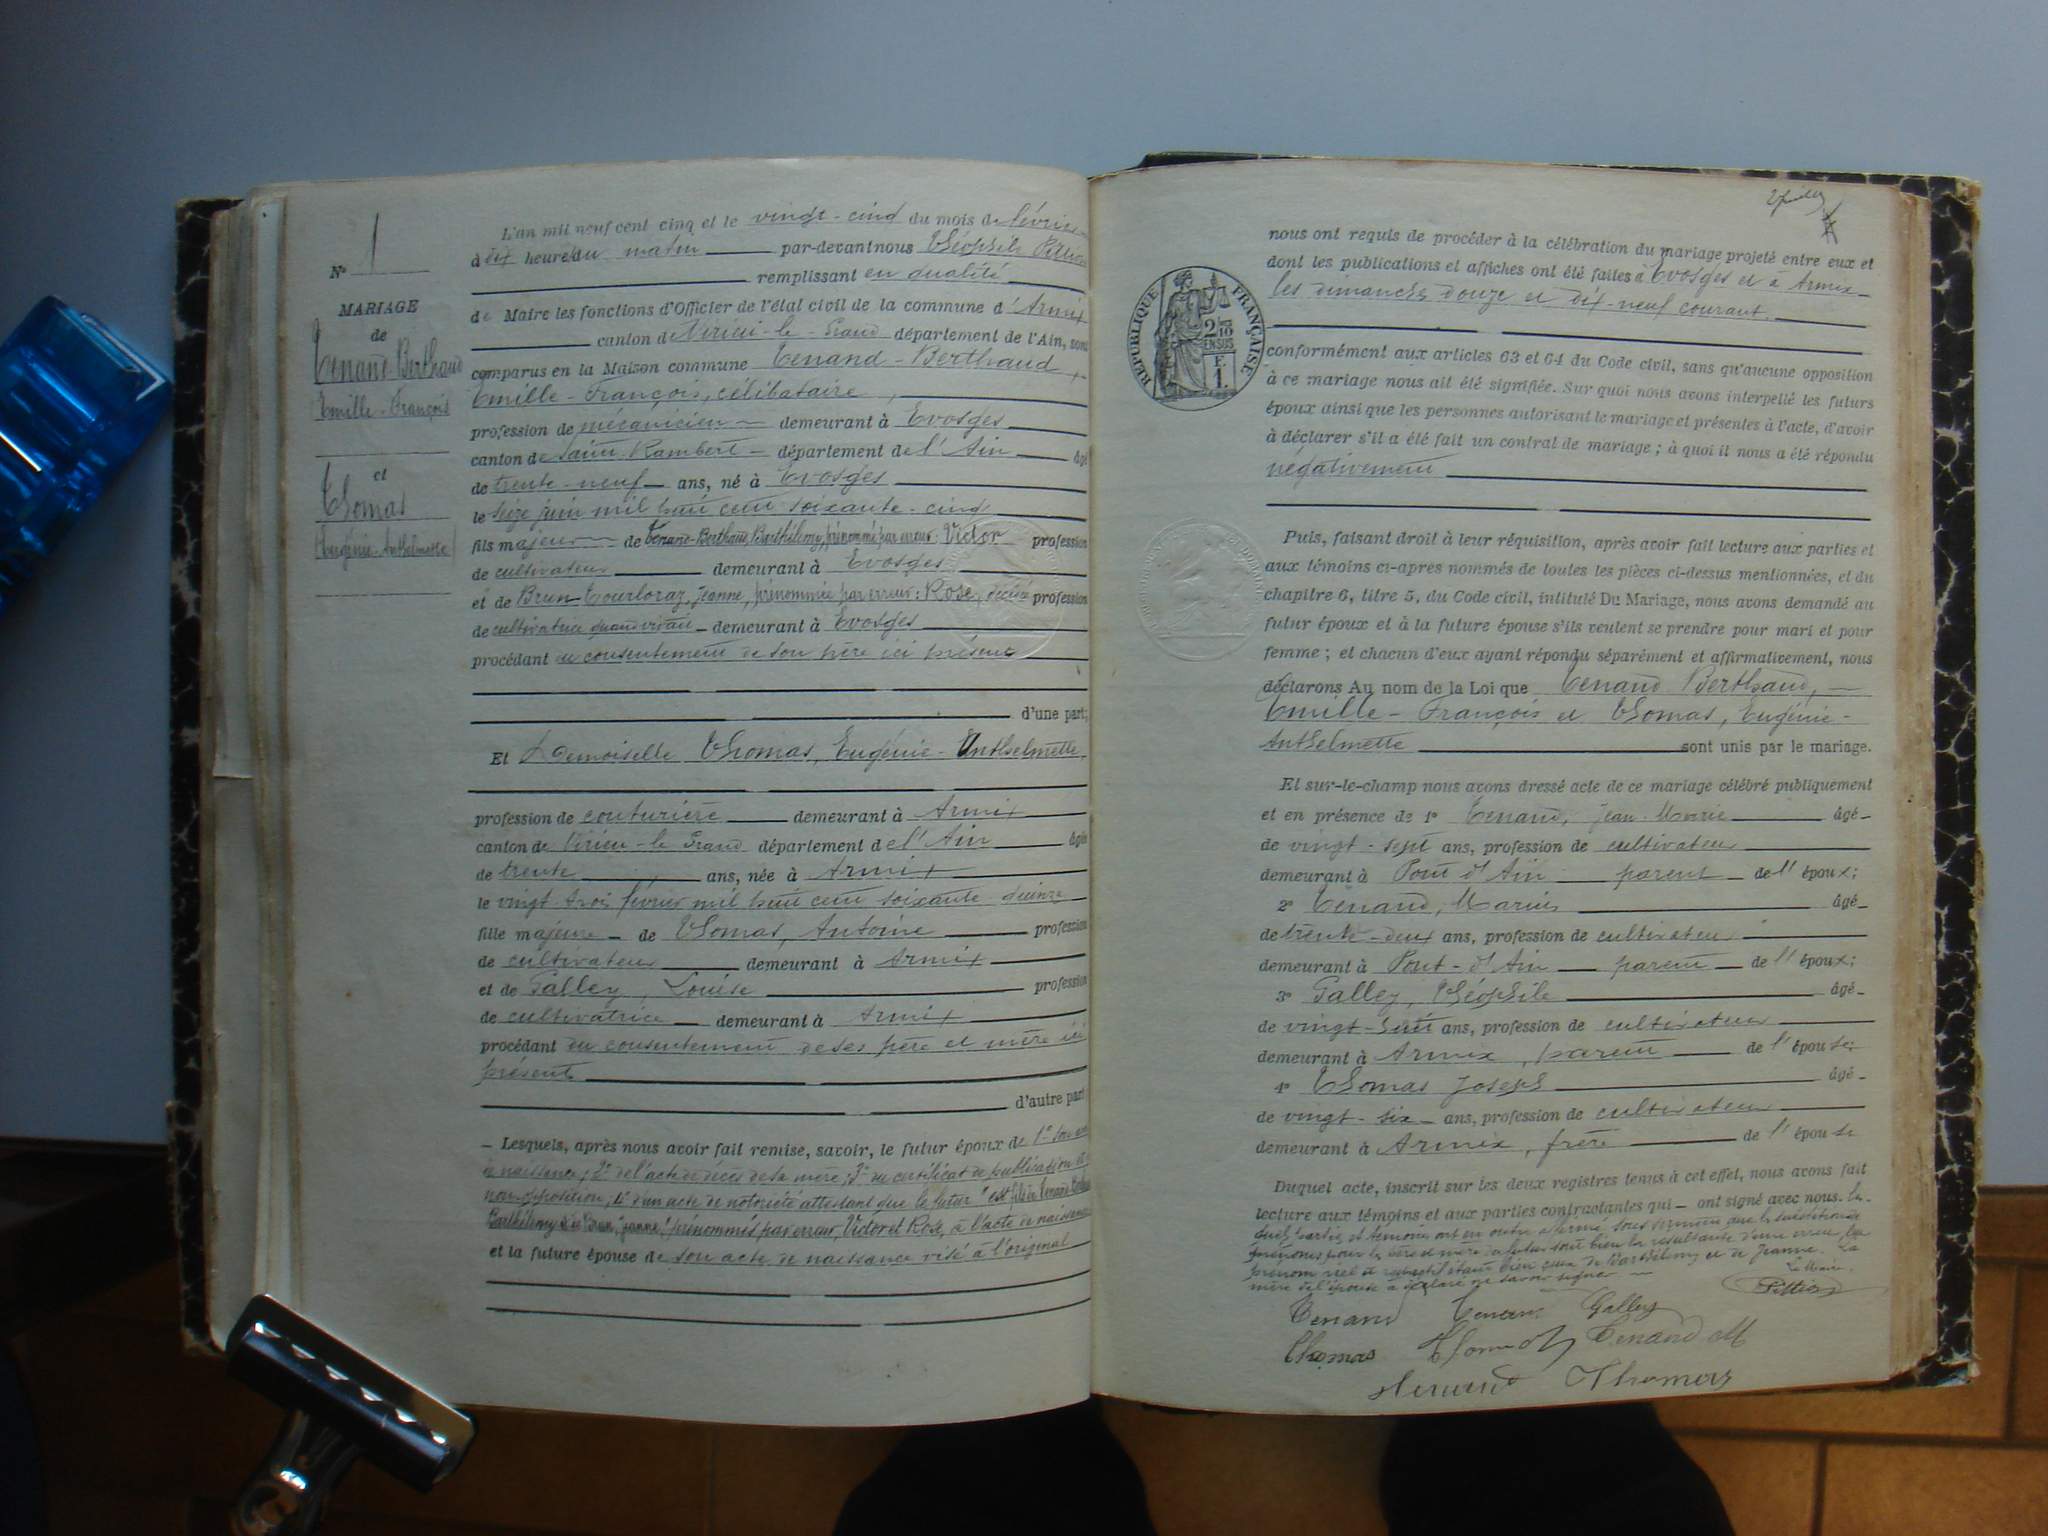 N° 1
MARIAGE
de
Tenand Berthaud
Emille-François
et
Thomas
Eugénie-Anthelmette
L'an mil neuf cent cinq et le vingt-cinq du mois de février
à dix heures du matin par-devant nous Théophile Pittion
remplissant en qualité
de Maire les fonctions d'Officier de l'état civil de la commune d'Armix
canton de Virieu-le-Grand département de l'Ain, sont
comparus en la Maison commune Tenand-Berthaud,
Emille-François, célibataire,
profession de mécanicien demeurant à Evosges
canton de Saint-Rambert département de l'Ain âgé
de trente-neuf ans, né à Evosges
le seize juin mil huit cent soixante-cinq
fils majeur de Tenand-Berthaud, Barthélemy, prénommé par erreur: Victor profession
de cultivateur demeurant à Evosges
et de Brun-Tourloraz, Jeanne, prénommée par erreur: Rose, décédée profession
de cultivatrice quand vivait demeurant à Evosges
procédant du consentement de son père ici présent
d'une part;
Et Demoiselle Thomas, Eugénie-Anthelmette,
profession de couturière demeurant à Armix
canton de Virieu-le-Grand département de l'Ain âgée
de trente ans, née à Armix
le vingt trois février mil huit cent soixante quinze
fille majeure de Thomas, Antoine profession
de cultivateur demeurant à Armix
et de Galley, Louise profession
de cultivatrice demeurant à Armix
procédant du consentement de ses père et mère ici
présents
d'autre part
– Lesquels, après nous avoir fait remise, savoir, le futur époux de 1° son acte
de naissance; 2° de l'acte de décès de sa mère; 3° du certificat de publication et
non opposition; 4° d'un acte de notoriété attestant que le futur "est fils de Tenand Berthaud
Barthélemy et de Brun, Jeanne," prénommés par erreur, Victor et Rose, à l'acte de naissance
et la future épouse de son acte de naissance visé à l'original
REPUBLIQUE FRANÇAISE
2/10 EN SUS
F.
1.
nous ont requis de procéder à la célébration du mariage projeté entre eux et
dont les publications et affiches ont été faites à Evosges et à Armix
les dimanches douze et dix-neuf courant.
conformément aux articles 63 et 64 du Code civil, sans qu'aucune opposition
à ce mariage nous ait été signifiée. Sur quoi nous avons interpellé les futurs
époux ainsi que les personnes autorisant le mariage et présentes à l'acte, d'avoir
à déclarer s'il a été fait un contrat de mariage; à quoi il nous a été répondu
négativement
Puis, faisant droit à leur réquisition, après avoir fait lecture aux parties et
aux témoins ci-après nommés de toutes les pièces ci-dessus mentionnées, et du
chapitre 6, titre 5, du Code civil, intitulé Du Mariage, nous avons demandé au
futur époux et à la future épouse s'ils veulent se prendre pour mari et pour
femme; et chacun d'eux ayant répondu séparément et affirmativement, nous
déclarons Au nom de la Loi que Tenand Berthaud,
Emille-François et Thomas, Eugénie-
Anthelmette sont unis par le mariage.
Et sur-le-champ nous avons dressé acte de ce mariage célébré publiquement
et en présence de 1° Tenand, Jean-Marie âgé
de vingt-sept ans, profession de cultivateur
demeurant à Pont d'Ain parent de l'époux;
2° Tenand, Marius âgé
de trente-deux ans, profession de cultivateur
demeurant à Pont-d'Ain parent de l'époux;
3° Galley, Théophile âgé
de vingt-huit ans, profession de cultivateur
demeurant à Armix, parent de l'épouse;
4° Thomas Joseph âgé
de vingt-six ans, profession de cultivateur
demeurant à Armix, frère de l'épouse
Duquel acte, inscrit sur les deux registres tenus à cet effet, nous avons fait
lecture aux témoins et aux parties contractantes qui ont signé avec nous. Les
parties et témoins ont en outre affirmé sous serment que la substitution de
prénoms pour les père et mère du futur sont bien la résultante d'une erreur, les
prénoms réel et étant bien ceux de Barthélemy et de Jeanne. La
mère de l'épouse a déclaré ne savoir signer
Le Maire.
Pittion
Tenand Tenand Galley
Thomas Tenand M
Tenand Thomas